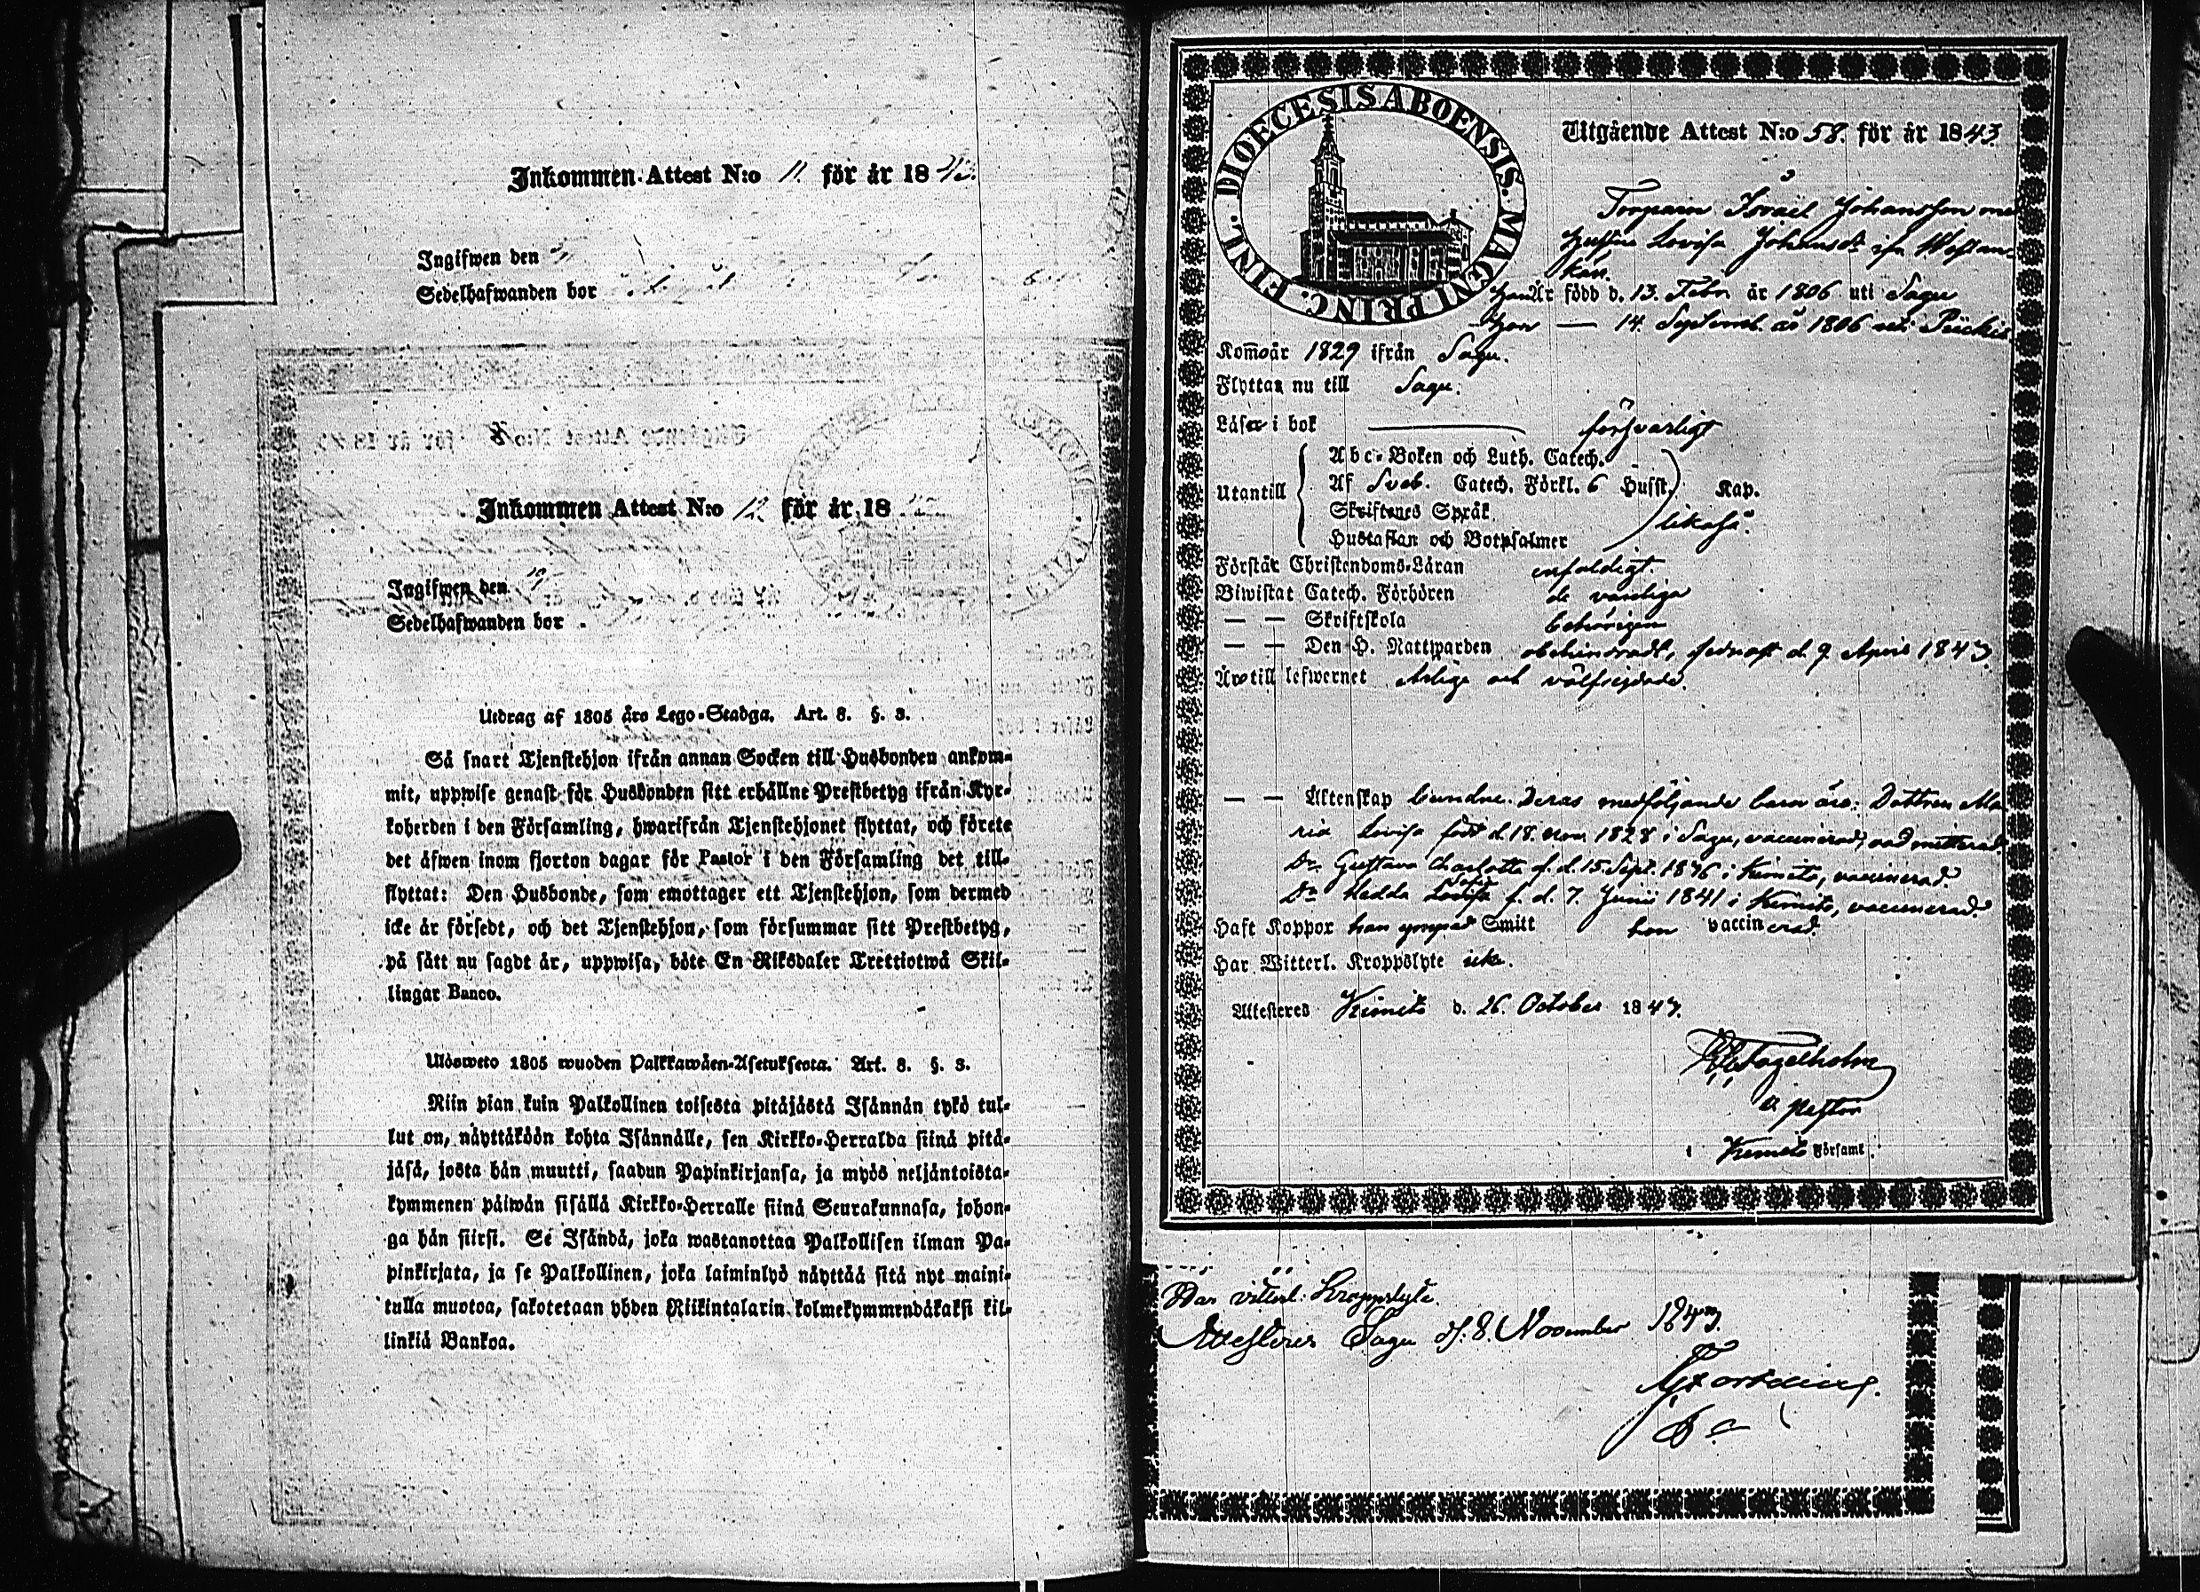 Inkommen Attest N:o 11 för år 18
Ingifwen den
Sedelhafwanden bor
Inkommen Attest N:o 12 för år 18
Ingifwen den
Sedelhafwanden bor
Utdrag af 1805 års Lego-Stadga. Art. 8. §. 3.
Så snart Tjenstehjon ifrån annan Socken till Husbonden ankom-
mit, uppwise genast för Husbonden sitt erhållne Prestbetyg ifrån Kyr-
koherden i den Församling, hwarifrån Tjenstehjonet flyttat, och förete
det äfwen inom fjorton dagar för Pastor i den Församling det till-
flyttat: Den Husbonde, som emottager ett Tjenstehjon, som dermed
icke är försedt, och det Tjenstehjon, som försummar sitt Prestbetyg,
på sätt nu sagdt är, uppwisa, böte En Riksdaler Trettiotwå Skil-
lingar Banco.
Ulosweto 1805 wuoden Palkkawäen-Asetuksesta. Art. 8. §. 3.
Niin pian kuin Palkollinen toisesta pitäjästä Isännän tykö tul-
lut on, näyttäköön kohta Isännälle, sen Kirkko-Herralda siinä pitä-
jäsä, josta hän muutti, saadun Papinkirjansa, ja myös neljäntoista-
kymmenen päiwän sisällä Kirkko-Herralle siinä Seurakunnasa, johon-
ga hän siirsi. Se Isändä, joka wastanottaa Palkollisen ilman Pa-
pinkirjata, ja se Palkollinen, joka laiminlyö näyttää sitä nyt maini-
tulla muotoa, sakotetaan yhden Riikintalarin kolmekymmendäkaksi kil-
linkiä Bankoa.
DIOECESIS ABOENSIS. MAGNI PRINC. FINL.
Utgående Attest N:o 58. för år 1843.
Torparn Israel Johansson
Hustru Lovisa Johansdr
Han Är född d. 13. Febr år 1806 uti Sagu
Hon — 14. Septemb. år 1806 uti Piickis
Kom år 1829 ifrån Sagu.
Flyttar nu till Sagu.
Läser i bok försvarligt
Utantill
Abc-Boken och Luth. Catech.
Af Sveb. Catech. Förkl. 6 Hufst. Kap.
Skriftenes Språk likaså
Hustaflan och Botpsalmer
Förstår Christendoms-Läran enfaldigt.
Biwistat Catech. Förhören de vanliga
— — Skriftskola behörigen
— — Den H. Nattwarden obehindradt, sednast d. 9 April 1843.
Äro till lefwernet Ärlige och välfrejdade.
— — Äktenskap bundne. Deras medföljande barn äro: Dottren Ma
ria Lovisa född d. 18. Nov. 1828 i Sagu, vaccinerad,
Dr. Gustava Charlotta f. d. 15. Sept. 1836 i Kimito, vaccinerad.
Dr Hedda Sofia f. d. 7. Junii 1841 i Kimito, vaccinerad.
Haft Koppor han ympad Smitt hon vaccinerad
Har Witterl. Kroppslyte icke.
Attesteres Kimito d. 26. October 1843.
Fagelholm
v. Pastor
i Kimito Församl.
Har vitterl. Kroppslyte
Attesteres Sagu d. 8. November 1843.